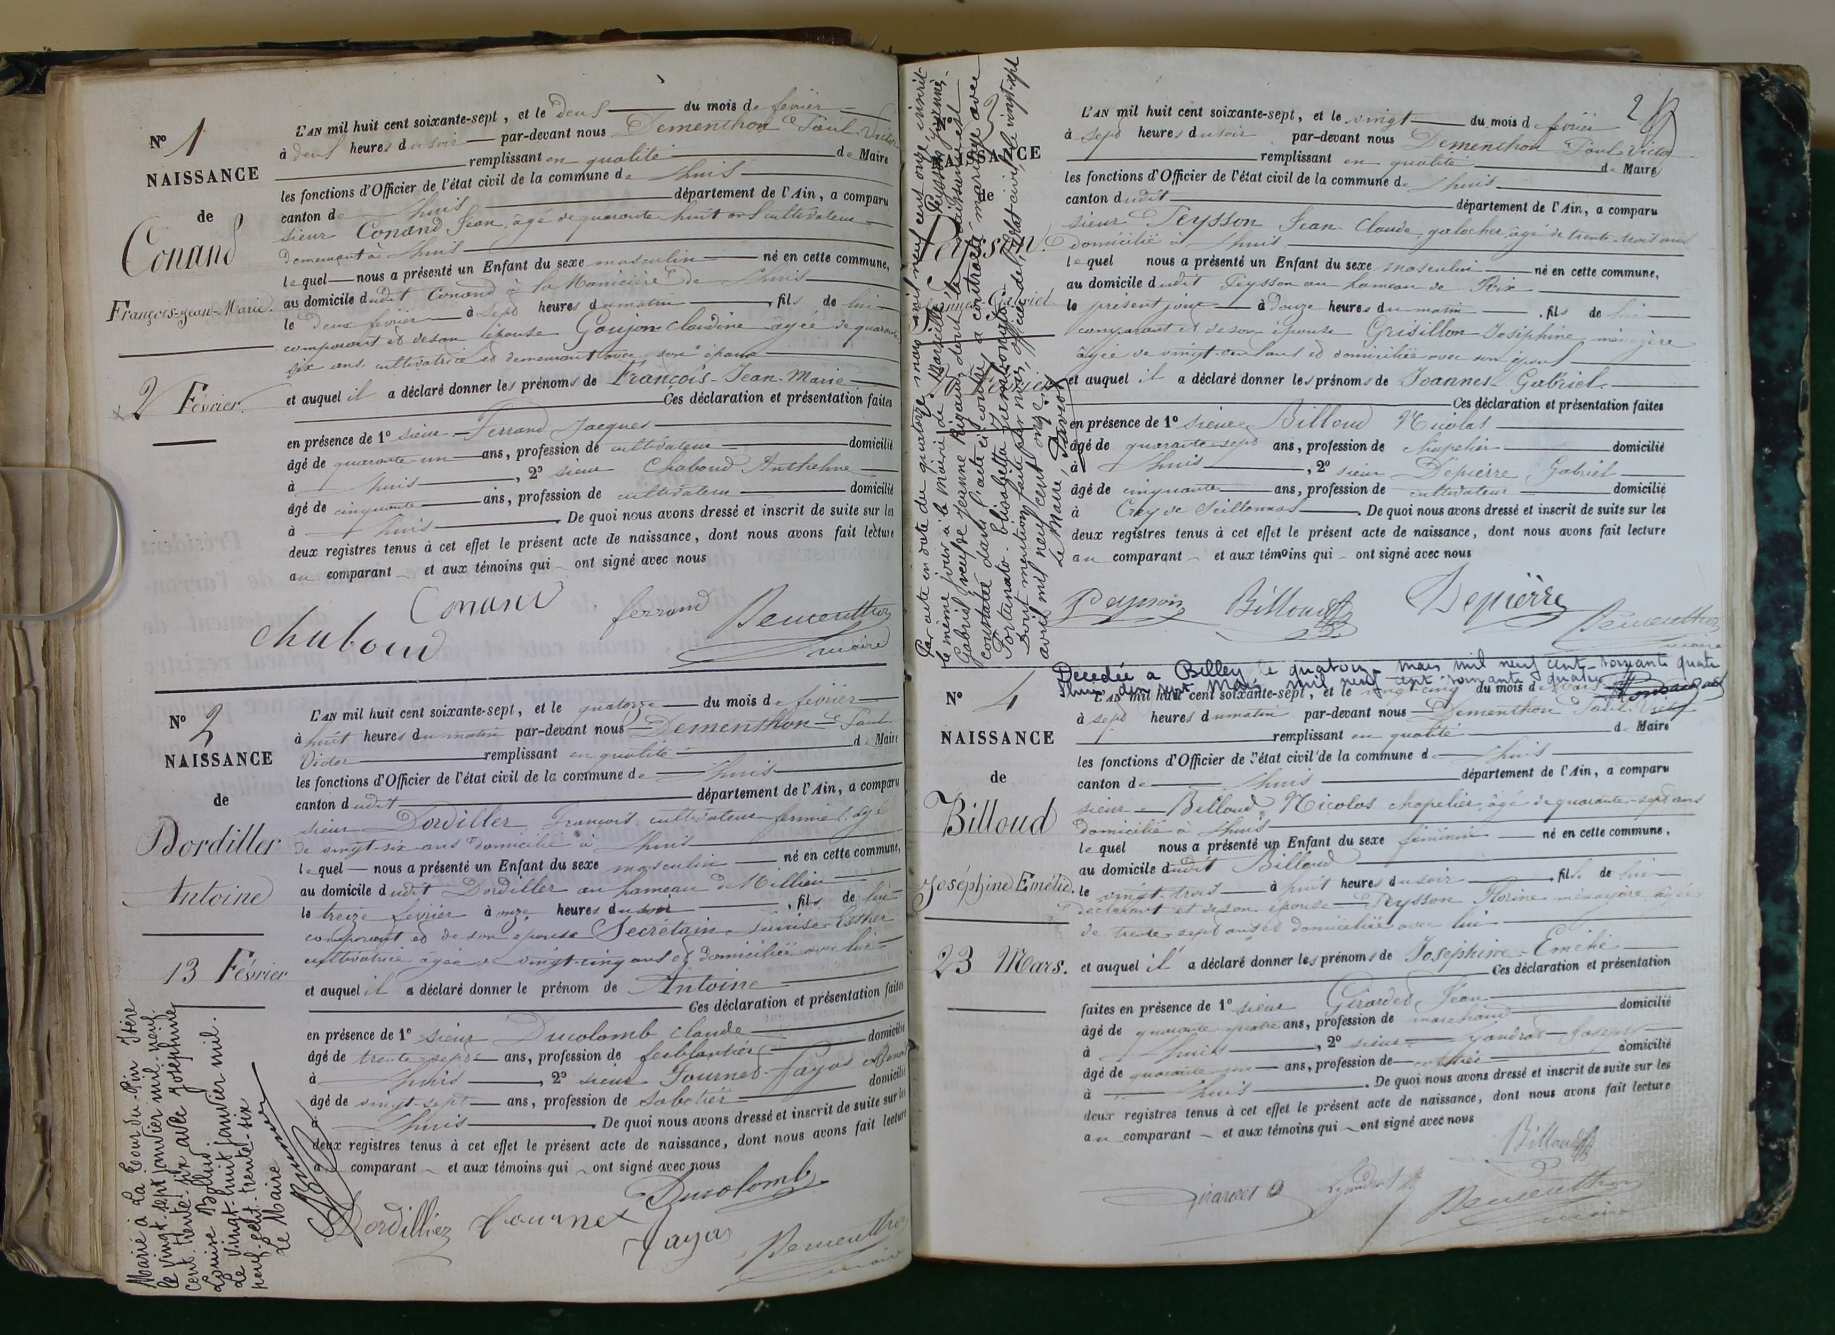 N° 1
NAISSANCE
de
Conand
François-Jean-Marie.
2 Février.
L'AN mil huit cent soixante-sept, et le deux du mois de février
à deux heures du soir par-devant nous Dementhon Paul Victor
remplissant en qualité de Maire
les fonctions d'Officier de l'état civil de la commune de Lhuis
canton de Lhuis département de l'Ain, a comparu
sieur Conand Jean, âgé de quarante huit ans cultivateur
demeurant à Lhuis
lequel nous a présenté un Enfant du sexe masculin né en cette commune,
au domicile dudit Conand à la de Lhuis
le deux février à sept heures du matin, fils de lui
comparant et de son épouse Goujon Claudine âgée de quarante
six ans cultivatrice et demeurant avec son époux
et auquel il a déclaré donner les prénoms de François-Jean-Marie
Ces déclaration et présentation faites
en présence de 1° sieur Ferrand Jacques
âgé de quarante un ans, profession de cultivateur domicilié
à Lhuis, 2° sieur Chaboud Anthelme
âgé de cinquante ans, profession de cultivateur domicilié
à Lhuis. De quoi nous avons dressé et inscrit de suite sur les
deux registres tenus à cet effet le présent acte de naissance, dont nous avons fait lecture
au comparant et aux témoins qui ont signé avec nous
Conand ferrand Dementhon
chaboud maire
N° 2
NAISSANCE
de
Dordiller
Antoine
13 Février
L'AN mil huit cent soixante-sept, et le quatorze du mois de février
à huit heures du matin par-devant nous Dementhon Paul
Victor remplissant en qualité de Maire
les fonctions d'Officier de l'état civil de la commune de Lhuis
canton dudit département de l'Ain, a comparu
sieur Dordiller François cultivateur fermier âgé
de vingt-six ans domicilié à Lhuis
lequel nous a présenté un Enfant du sexe masculin né en cette commune,
au domicile dudit Dordiller au hameau de Millieu
le treize février à onze heures du soir, fils de lui
comparant et de son épouse Secretain Louise Esther
cultivatrice âgée de vingt-cinq ans et domiciliée avec lui
et auquel il a déclaré donner le prénom de Antoine
Ces déclaration et présentation faites
en présence de 1° sieur Ducolomb Claude domicilié
âgé de trente sept ans, profession de ferblantier
à Lhuis, 2° sieur Fournet-fayas
âgé de vingt-sept ans, profession de sabotier domicilié
à Lhuis. De quoi nous avons dressé et inscrit de suite sur les
deux registres tenus à cet effet le présent acte de naissance, dont nous avons fait lecture
au comparant et aux témoins qui ont signé avec nous
Ducolomb
Dordilliez fournet fayas
Dementhon
maire
Marié à La Tour-du-Pin Isère
le vingt-sept janvier mil-neuf
cent-trente-six avec Joséphine
Louise
de vingt-huit janvier mil.
neuf-cent-trente-six
Le Maire
2
NAISSANCE
de
Peysson
Joannes Gabriel
20 Février
L'AN mil huit cent soixante-sept, et le vingt du mois de février
à sept heures du soir par-devant nous Dementhon Paul Victor
remplissant en qualité de Maire
les fonctions d'Officier de l'état civil de la commune de Lhuis
canton dudit département de l'Ain, a comparu
sieur Peysson Jean Claude galocher âgé de trente-trois ans
domicilié à Lhuis
lequel nous a présenté un Enfant du sexe masculin né en cette commune,
au domicile dudit Peysson au hameau de Rix
le présent jour à douze heures du matin, fils de lui
comparant et de son épouse Grisillon Joséphine ménagère
âgée de vingt-un ans et domiciliée avec son époux
et auquel il a déclaré donner les prénoms de Joannes Gabriel
Ces déclaration et présentation faites
en présence de 1° sieur Billoud Nicolas
âgé de quarante-sept ans, profession de chapelier domicilié
à Lhuis, 2° sieur Depierre Gabriel
âgé de cinquante ans, profession de cultivateur domicilié
à Crey de Seillonnas. De quoi nous avons dressé et inscrit de suite sur les
deux registres tenus à cet effet le présent acte de naissance, dont nous avons fait lecture
au comparant et aux témoins qui ont signé avec nous
Peysson Billoud Depierre
Dementhon
maire
Par acte en date du quatorze mars mil neuf cent onze inscrit
le même jour à la mairie de Marseille Peysson Joannès-
Gabriel, veuf de Jeanne Rigaud, dont la naissance est
constatée dans l'acte ci-contre, a contracté mariage avec
Fortunato-Elisabetta
Dont mention faite par nous, officier de l'état civil, le vingt-sept
avril mil neuf cent onze
Le Maire,
Décédée a Belley le quatorze mars mil neuf cent soixante quatre
Lhuis, dix sept Mars mil neuf cent soixante quatre
N° 4
NAISSANCE
de
Billoud
Joséphine Emélie.
23 Mars.
L'AN mil huit cent soixante-sept, et le vingt-cinq du mois de mars
à sept heures du matin par-devant nous Dementhon Paul Victor
remplissant en qualité de Maire
les fonctions d'Officier de l'état civil de la commune de Lhuis
canton de Lhuis département de l'Ain, a comparu
sieur Billoud Nicolas chapelier, âgé de quarante-sept ans
domicilié à Lhuis
lequel nous a présenté un Enfant du sexe féminin né en cette commune,
au domicile dudit Billoud
le vingt-trois à huit heures du soir, fils de lui
déclarant et de son épouse Peysson Florine ménagère âgée
de trente-sept ans et domiciliée avec lui
et auquel il a déclaré donner les prénoms de Joséphine-Emélie
Ces déclaration et présentation
faites en présence de 1° sieur Girardet Jean domicilié
âgé de quarante quatre ans, profession de marchand
à Lhuis, 2° sieur Gandrat Joseph
âgé de quarante un ans, profession de domicilié
à Lhuis. De quoi nous avons dressé et inscrit de suite sur les
deux registres tenus à cet effet le présent acte de naissance, dont nous avons fait lecture
au comparant et aux témoins qui ont signé avec nous
Billoud
Girardet
Dementhon
maire